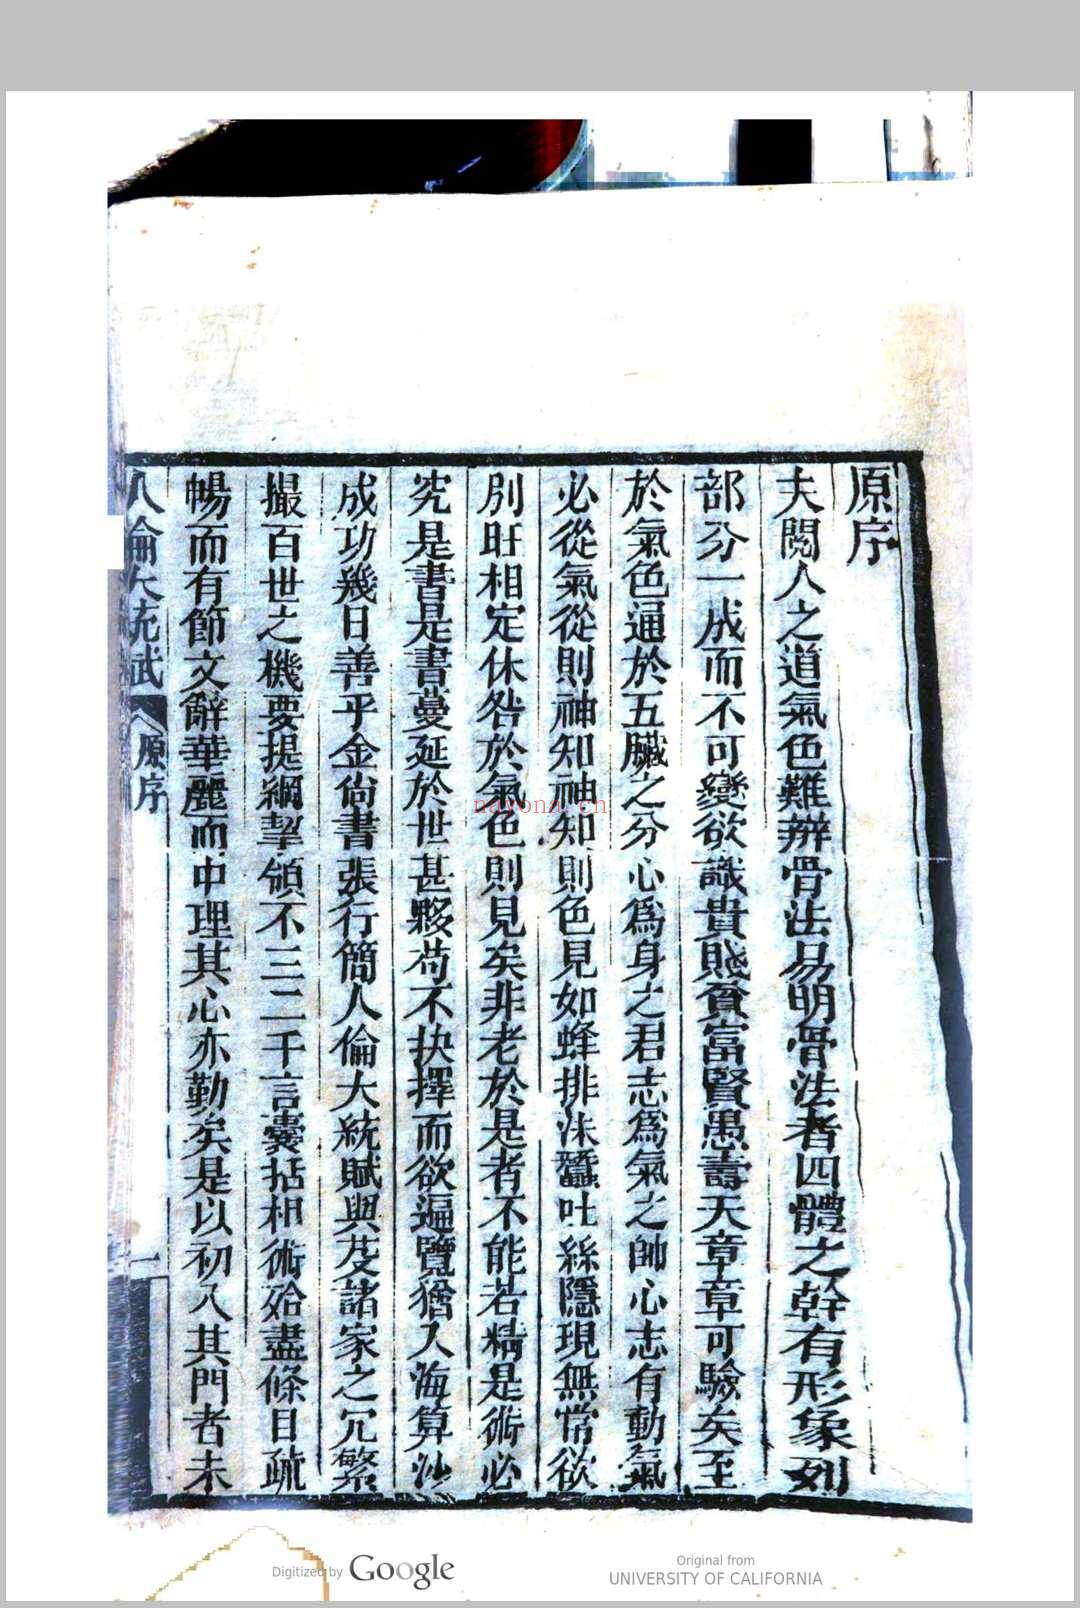 原序
夫閱人之道氣色難辨骨法易明骨法者四體之幹有形象列
部分一成而不可變欲識貴賤貧富賢愚壽夭章章可驗矣至
於氣色通於五臟之分心爲身之君志爲氣之帥心志有動氣
必從氣從則神知神知則色見如蜂排沫蠶吐絲隱現無常欲
別旺相定休咎於氣色則見矣非老於是者不能若精是術必
究是書是書蔓延於世甚夥苟不抉擇而欲遍覽猶入海算沙
成功幾日善乎金尙書張行簡人倫大統賦與芟諸家之冗繁
撮百世之機要提綱挈領不三二千言囊括相術殆盡條目疏
暢而有節文辭華麗而中理其心亦勤矣是以初入其門者未
人倫大統賦
原序
一
nayona.cn
Digitized by Google
Original from
UNIVERSITY OF CALIFORNIA